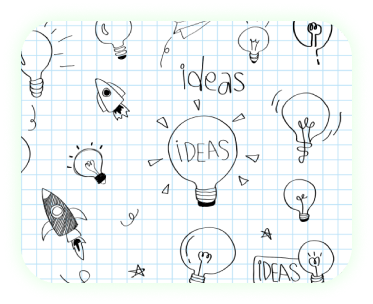 ideas
iDEAS
IDEAS